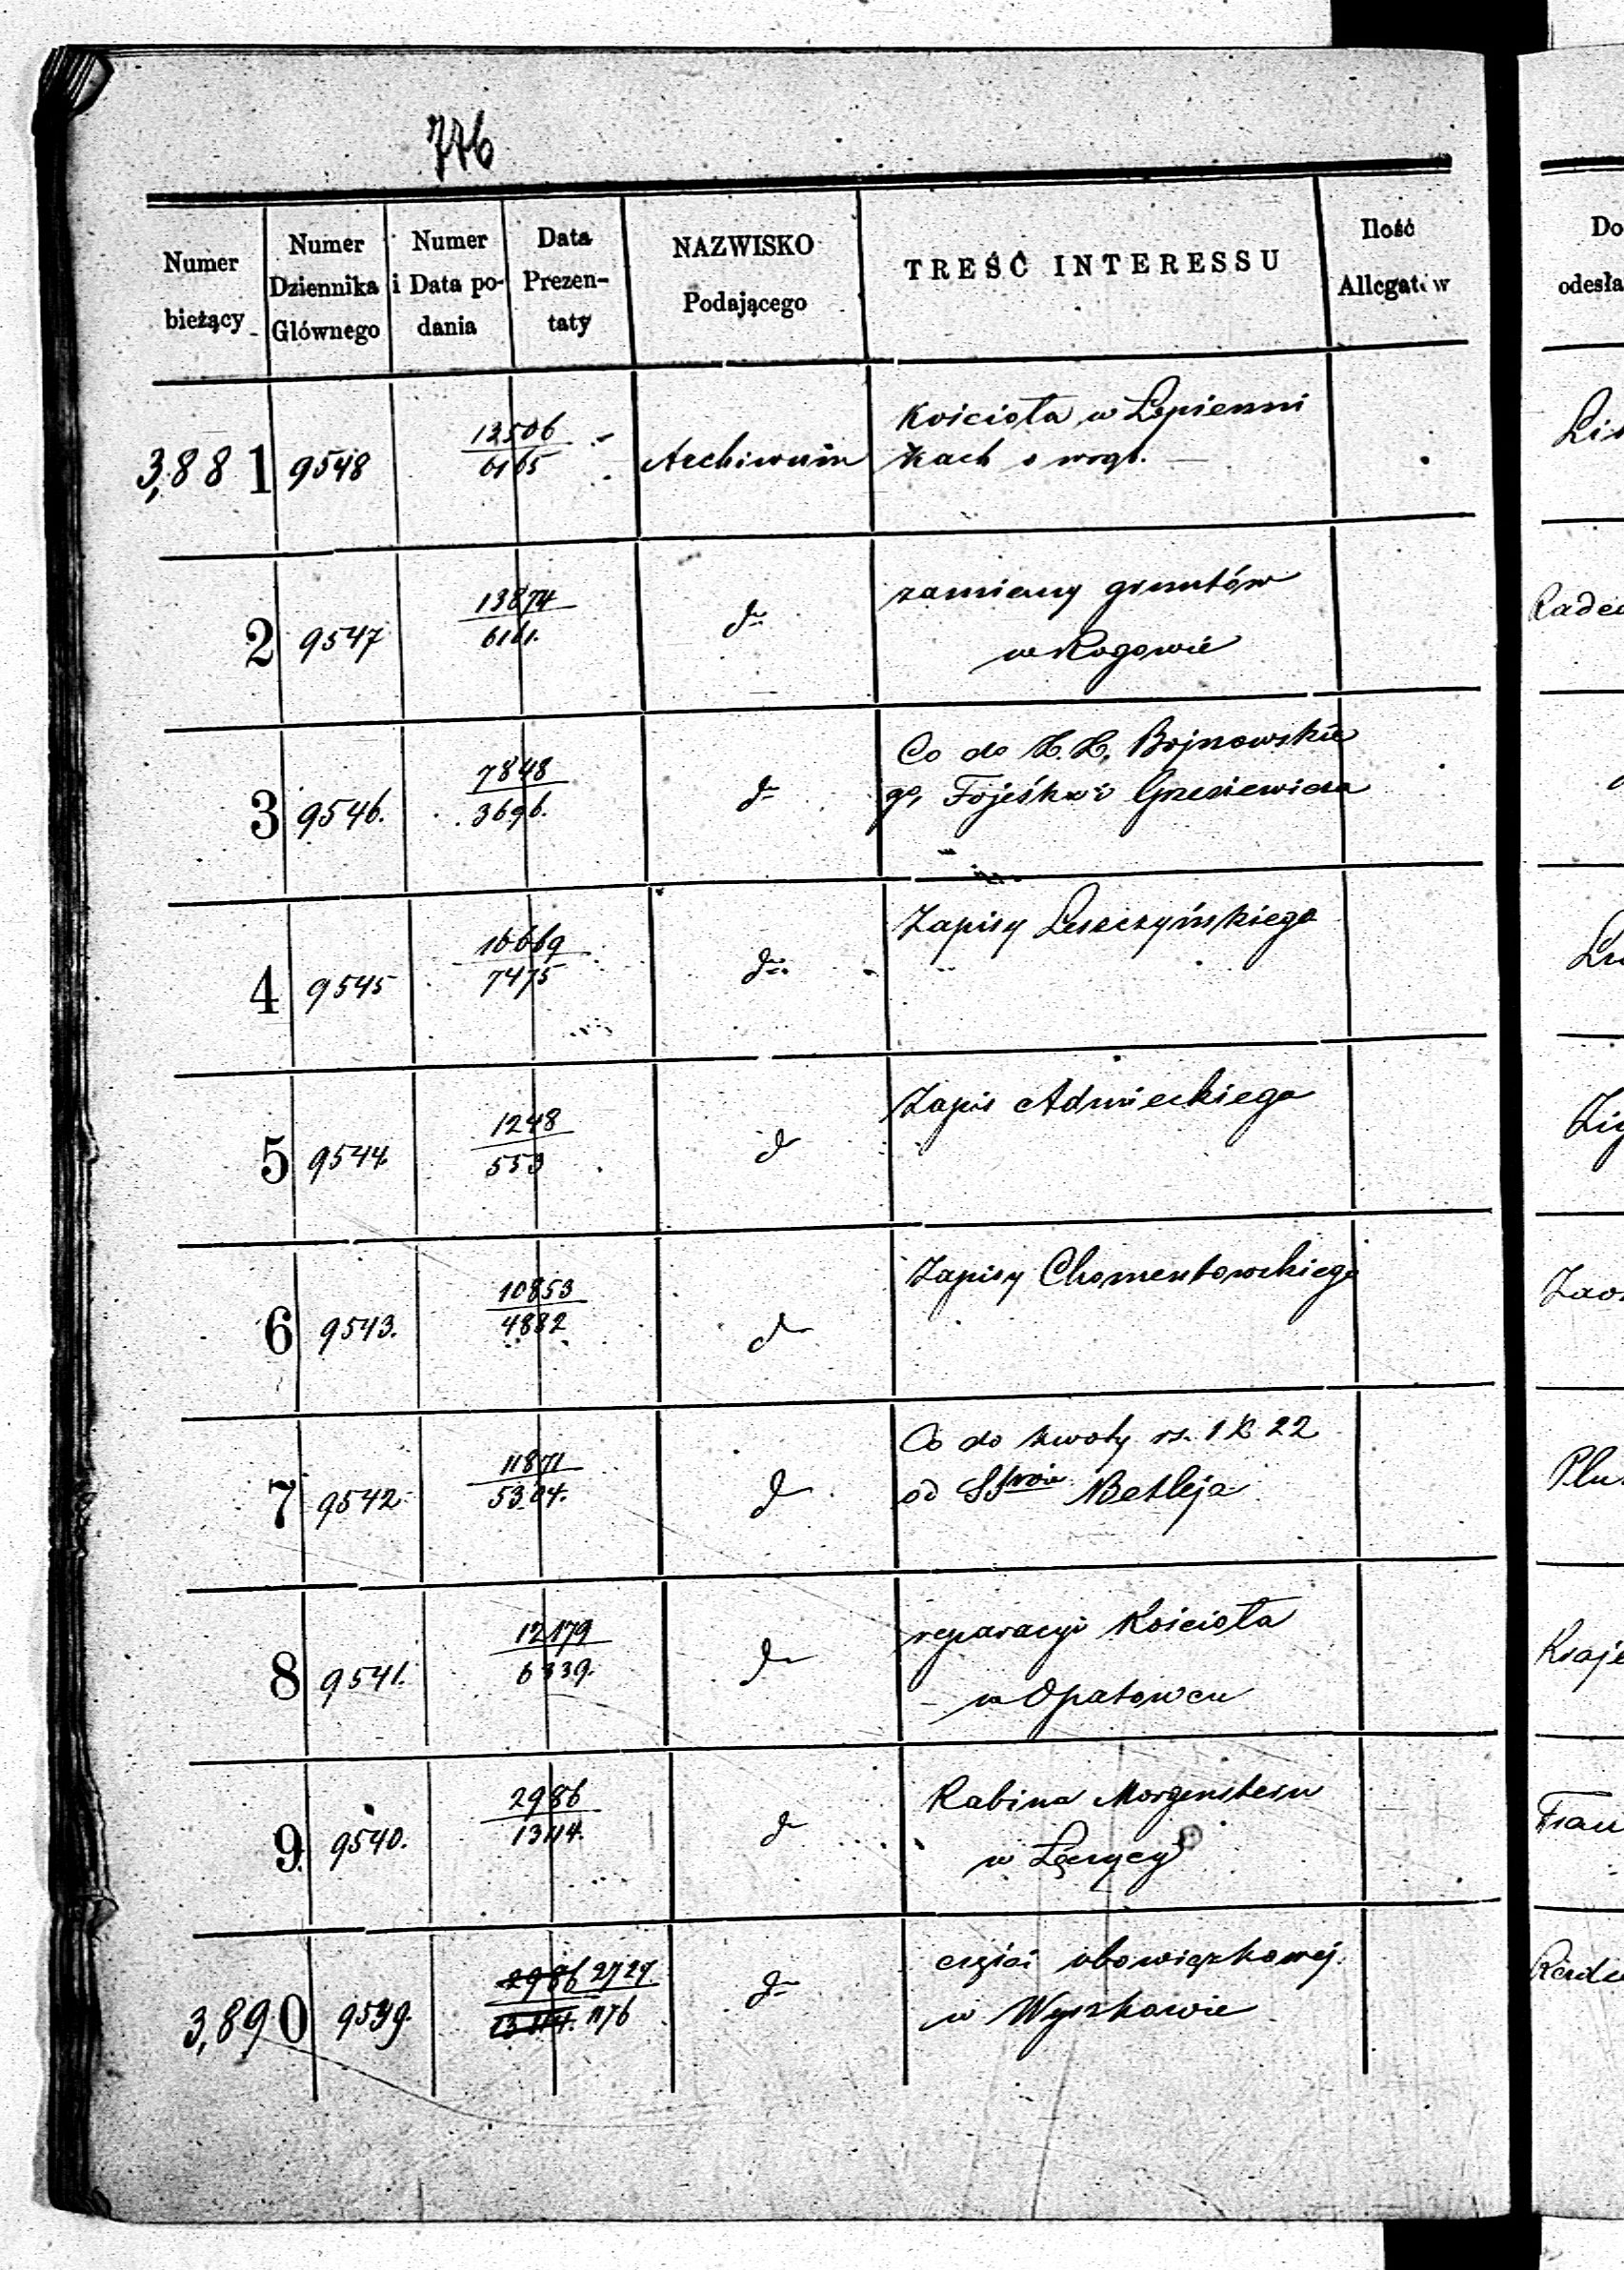 776
Numer bieżący
Numer Dziennika Głównego
Numer i Data podania
Data Prezentaty
NAZWISKO Podającego
TREŚĆ INTERESSU
Ilość Allegatów
Do
odesła
3,881 9548 13506 / 6165 Archiwum Kościoła w Łopiennikach
2 9547 13874 / 6161. do zamiany gruntów
w Rogowie
3 9546. 7848 / 3696. do Co do X.X. Bojnowskie
go,
4 9545 16669 / 7475 do Zapisy Leszczyńskiego
5 9544 1248 / 553 do Zapis
6 9543. 10853 / 4882 do Zapisy Chomentowskiego
7 9542 11871 / 5304. do Co do kwoty rs. 1 k 22
od SSrów Betleja
8 9541. 12179 / 6339. do reparacyi Kościoła
w Opatowcu
9 9540. 2986 / 1314. do Rabina Morgenstern
w Łęczycy
3,890 9539. 2986 2727 / 1314. 1176 do części obowiązkowej
w Wyszkowie